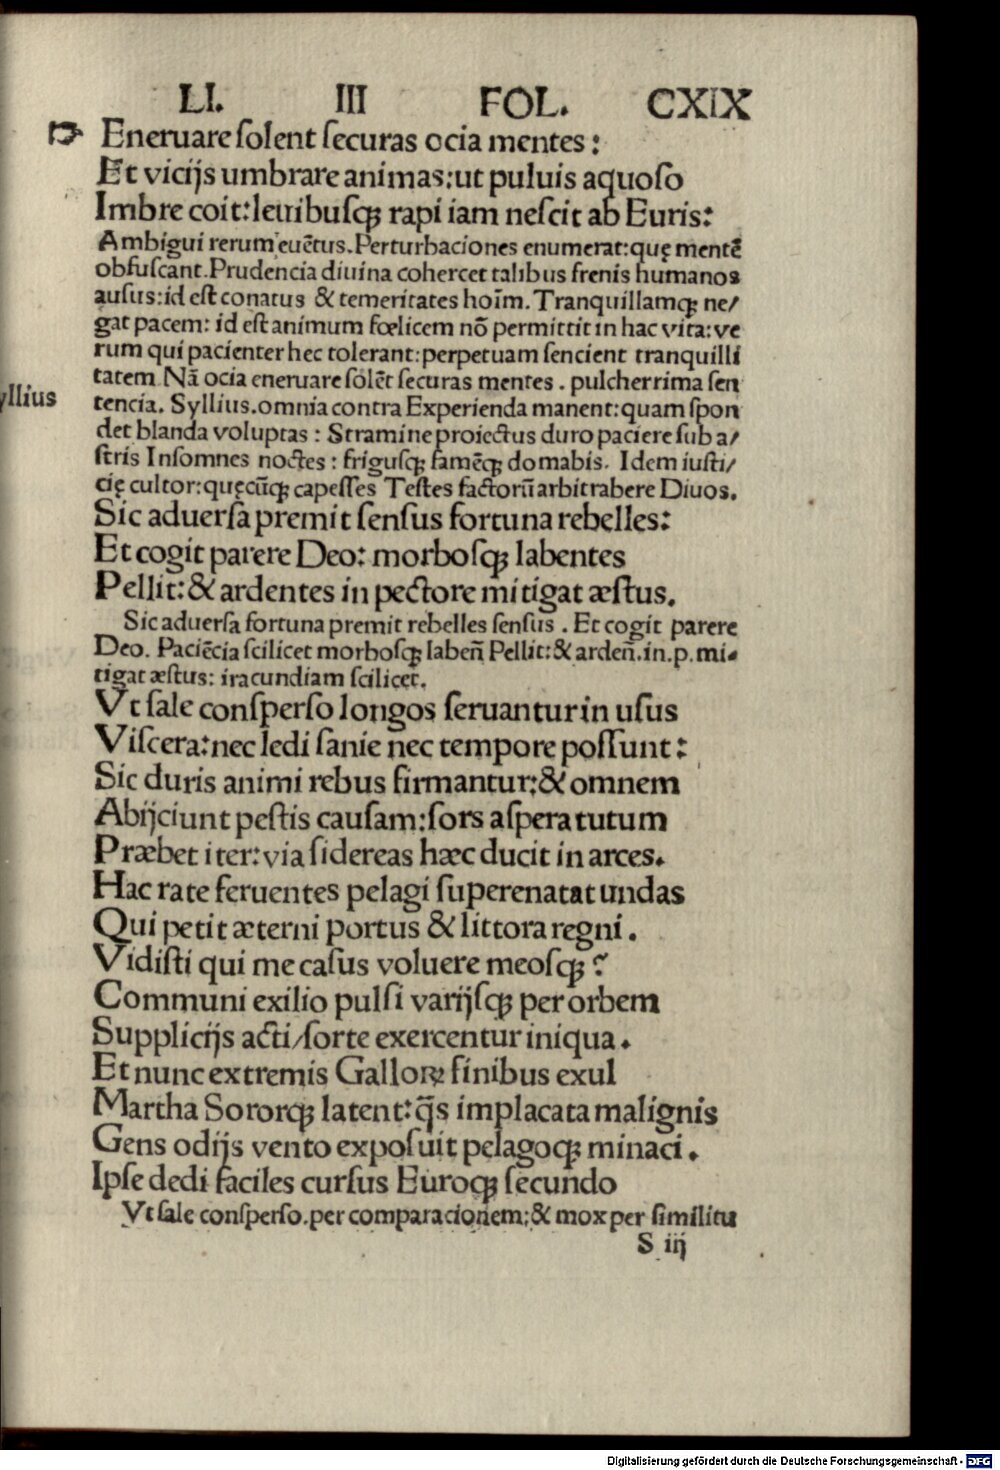 LI. III FOL. CXIX
☞ Eneruare ſolent ſecuras ocia mentes:
Et vicijs umbrare animas:ut puluis aquoſo
Imbre coit:leuibuſqꝫ rapi iam neſcit ab Euris:
Ambigui rerum euētus.Perturbaciones enumerat:quę mentē
obfuſcant.Prudencia diuina cohercet talibus frenis humanos
auſus:id eſt conatus & temeritates hoīm.Tranquillamqꝫ ne/
gat pacem: id eſt animum fœlicem nō permittit in hac vita:ve
rum qui pacienter hec tolerant:perpetuam ſencient tranquilli
tatem Nā ocia eneruare ſolēt ſecuras mentes. pulcherrima ſen
yllius
tencia. Syllius.omnia contra Experienda manent:quam ſpon
det blanda voluptas: Stramine proiectus duro paciere ſub a/
ſtris Inſomnes noctes: friguſqꝫ famēqꝫ domabis. Idem iuſti/
cię cultor:quęcūqꝫ capeſſes Teſtes factorū arbitrabere Diuos.
Sic aduerſa premit ſenſus fortuna rebelles:
Et cogit parere Deo: morboſqꝫ labentes
Pellit:& ardentes in pectore mitigat æſtus.
Sic aduerſa fortuna premit rebelles ſenſus. Et cogit parere
Deo. Paciēcia ſcilicet morboſqꝫ labeñ Pellit:& ardeñ.in.p.mi-
tigat æſtus: iracundiam ſcilicet.
Vt ſale conſperſo longos ſeruantur in uſus
Viſcera:nec ledi ſanie nec tempore poſſunt:
Sic duris animi rebus firmantur:& omnem
Abijciunt peſtis cauſam:ſors aſpera tutum
Præbet iter:via ſidereas hæc ducit in arces.
Hac rate feruentes pelagi ſuperenatat undas
Qui petit æterni portus & littora regni.
Vidiſti qui me caſus voluere meoſqꝫ?
Communi exilio pulſi varijſqꝫ per orbem
Supplicijs acti/ſorte exercentur iniqua.
Et nunc extremis Galloꝝ finibus exul
Martha Sororqꝫ latent:q̄s implacata malignis
Gens odijs vento expoſuit pelagoqꝫ minaci.
Ipſe dedi faciles curſus Euroqꝫ ſecundo
Vt ſale conſperſo.per comparacionem:& mox per ſimilitu
S iij
Digitalisierung gefördert durch die Deutsche Forschungsgemeinschaft - DFG